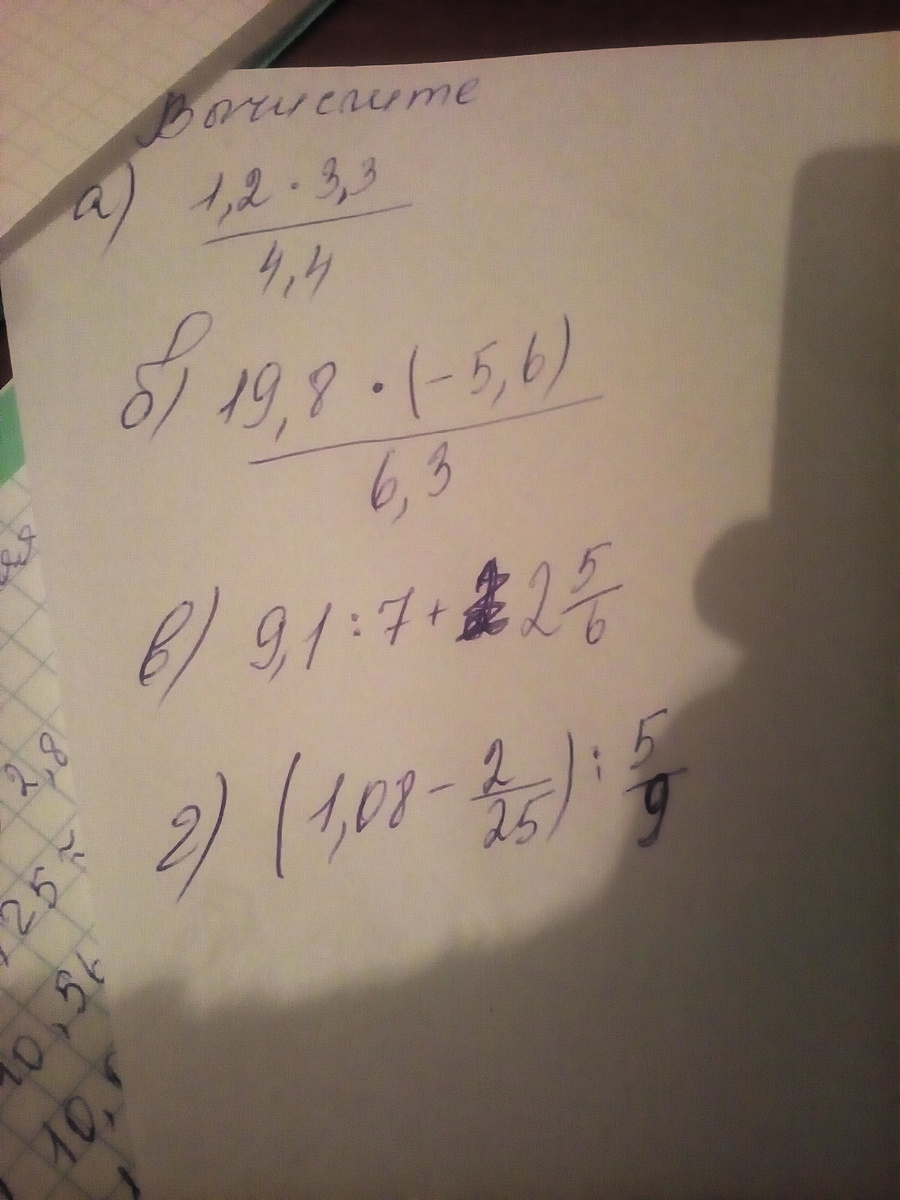 Вычислите
а) 1,2 · 3,3
4,4
б) 19,8 · (-5,6)
6,3
в) 9,1 : 7 + 2 5/6
г) (1,08 - 2/25) : 5/9
2,8
25
10,56
10,